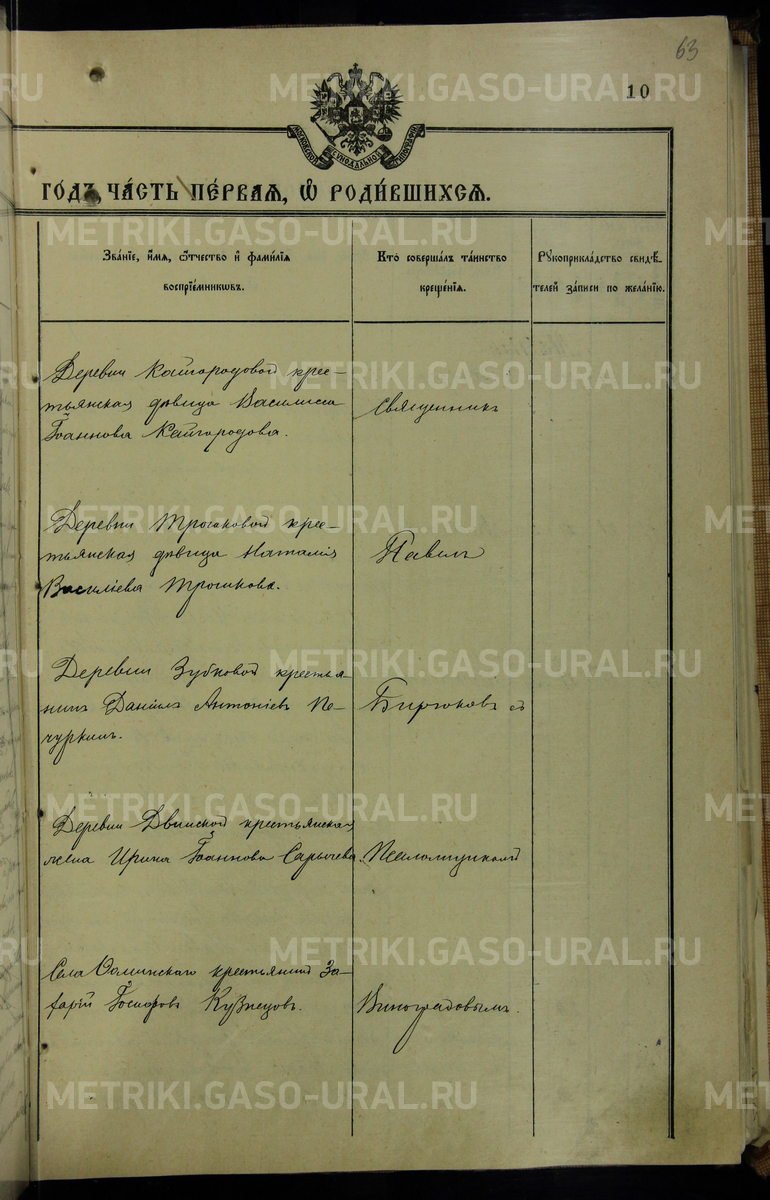 63
10
МОСКОВСКОЙ СѴНОДАЛЬНОЙ ТИПОГРАФІИ
ГОДЪ, ЧА́СТЬ ПЕ́РВАЯ, Ѽ РОДИ́ВШИХСЯ.
Зва́нїе, и҆́мя, ѻ҆́тчество и҆ фами́лїя
воспрїе́мникѡвъ.
Кто̀ соверша́лъ та́инство
креще́нїя.
Рꙋкоприкла́дство свидѣ́-
телей за́писи по жела́нїю.
Деревни Кайгородовой кре-
стьянская дѣвица Василисса
Іоаннова Кайгородова.
Священникъ
Деревни Трошковой кре-
стьянская дѣвица Наталія
Василіева Трошкова.
Павелъ
Деревни Зубковой крестья-
нинъ Даніилъ Антоніевъ Пе-
чуркинъ.
Бирюковъ съ
Деревни Двинской крестьянская
жена Ирина Іоаннова Сарычева.
Псаломщикомъ
Села крестьянин За-
харій Кузнецовъ.
Виноградовымъ.
METRIKI.GASO-URAL.RU